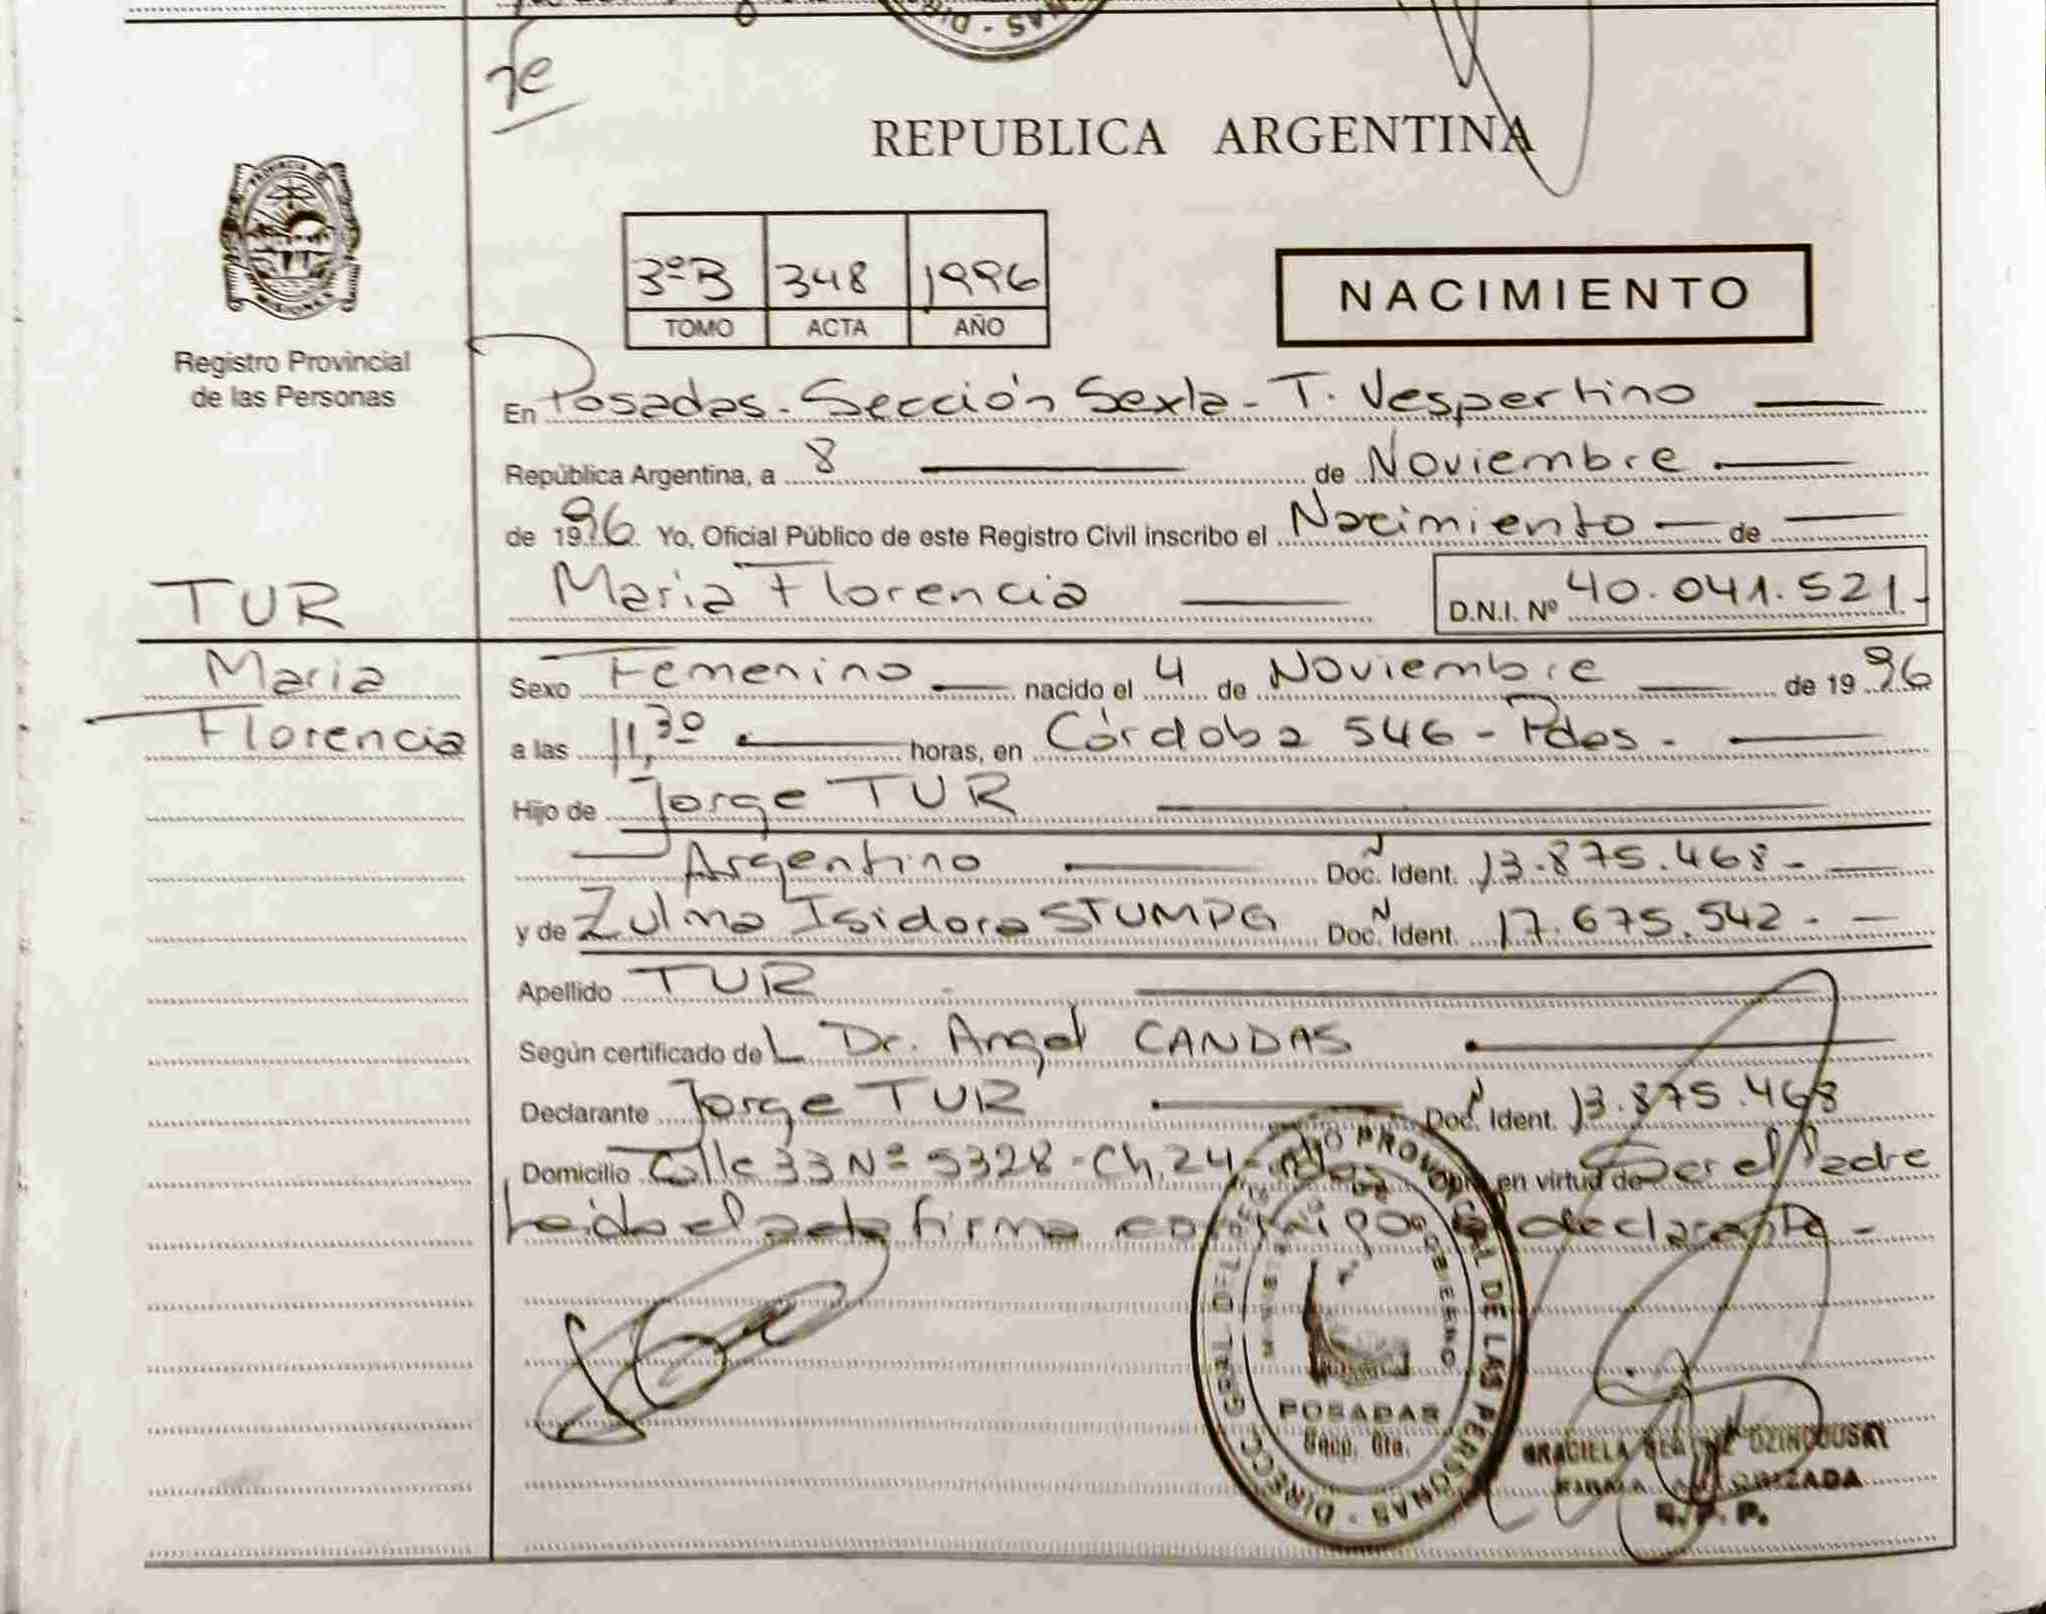 fe
REPUBLICA ARGENTINA
PROVINCIA DE
MISIONES
Registro Provincial
de las Personas
3ºB 348 1996
TOMO ACTA AÑO
NACIMIENTO
En Posadas - Sección Sexta - T. Vespertino
República Argentina, a 8 de Noviembre
de 1996 Yo, Oficial Público de este Registro Civil inscribo el Nacimiento de
Maria Florencia D.N.I. Nº 40.041.521.-
TUR
Maria
Florencia
Sexo Femenino nacido el 4 de Noviembre de 1996
a las 11,30 horas, en Córdoba 546 - Pdas -
Hijo de Jorge TUR
Argentino Doc. N Ident. 13.875.468 -
y de Zulma Isidora STUMPG Doc. N Ident. 17.675.542 -
Apellido TUR
Según certificado del Dr. Angel CANDAS
Declarante Jorge TUR Doc. N Ident. 13.875.468
Domicilio Calle 33 Nº 5328 - Ch. 24 - Obra en virtud de Ser el Padre
Leida el acta firma conmigo el declarante -
POSADAS
Secc. 6ta.
GRACIELA
FIRMA AUTORIZADA
R.P.P.